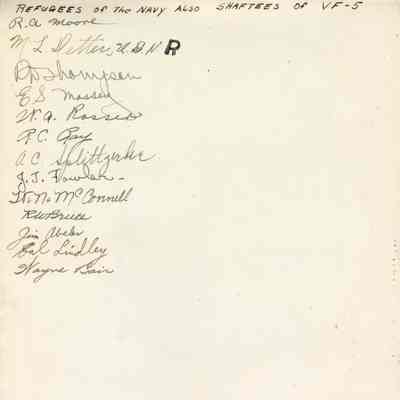 REFUGEES OF the NAVY ALSO SHAFTEES OF VF-5
R.A. Moore
M L Ditter, U.S.N R
R D Thompson
E S Massey
W. A. Rosser
R.C. Ray
A C Splittgerber
J. J. Fowler
W. N. McConnell
R W Bruce
Jim Abeler
Cal Lindley
Wayne Bair